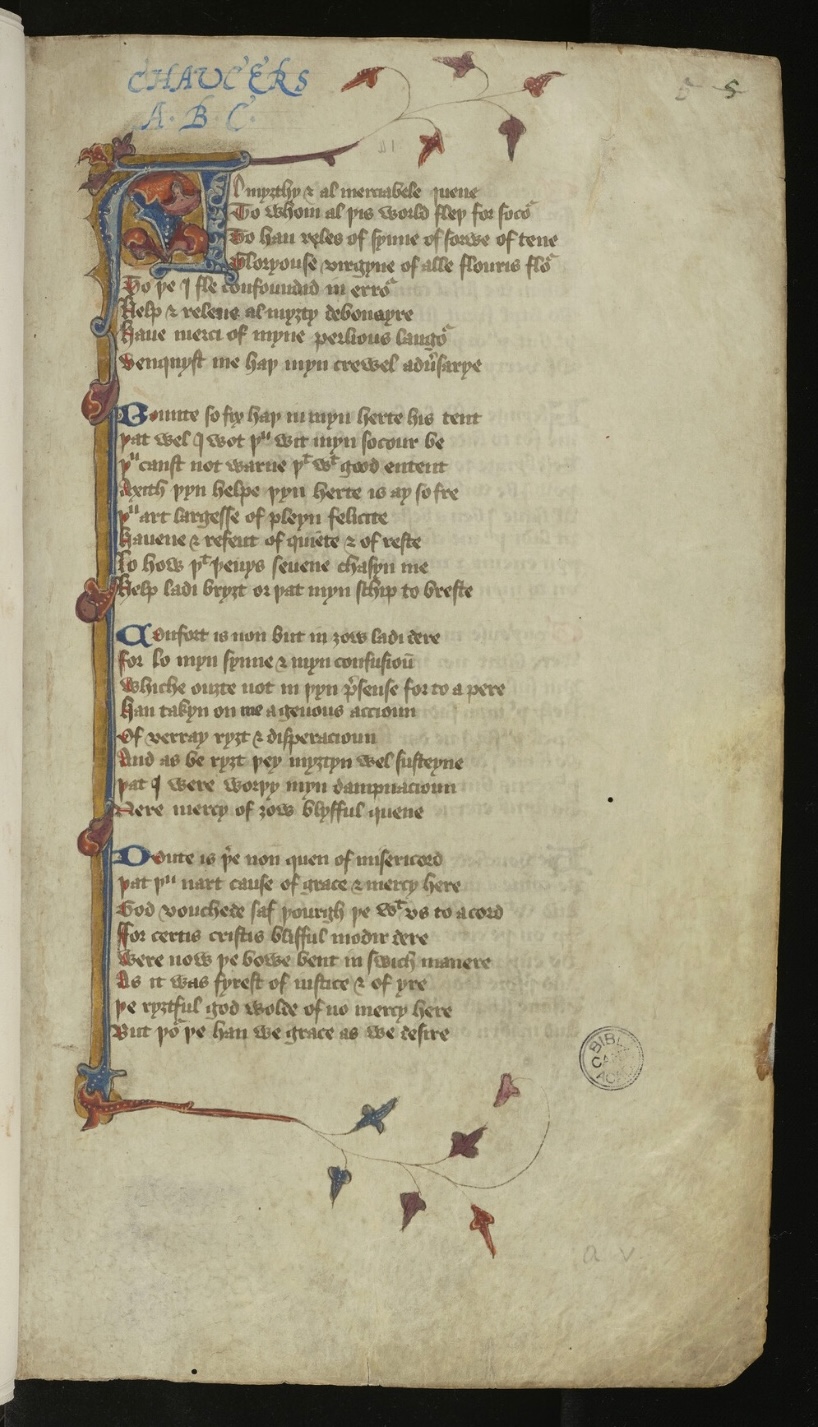 CHAUCERS
A·B·C·
5 5
Al myȝthy & al merciabele quene
To whom al þis world fleþ for socor
To han reles of synne of sorwe of tene
Gloryouse virgyne of alle flouris flor
To þe I fle confoundid in error
Help & releue al myȝty debonayre
Haue merci of myne perlious langor
Venquyst me haþ myn crewel aduersarye
Bounte so fix haþ in myn herte his tent
þat wel I wot þu wit myn socour be
þu canst not warne þt wt good entent
Axith þyn helpe þyn herte is ay so fre
þu art largesse of pleyn felicite
Hauene & refent of quiete & of reste
Lo how þt þeuys seuene chasyn me
Help ladi bryȝt or þat myn schip to breste
Confort is non but in ȝow ladi dere
for lo myn synne & myn confusioun
whiche ouȝte not in þyn presense for to a pere
han takyn on me a geuous accioun
Of verray ryȝt & disperacioun
And as be ryȝt þey myȝtyn wel susteyne
þat I were worþy myn dampnacioun
Nere mercy of ȝow blysful quene
Doute is þere non quen of misericord
þat þu nart cause of grace & mercy here
God vouchede saf þourgh þe wt vs to acord
ffor certis cristis blisful modir dere
were now þe bowe bent in swich manere
As it was fyrest of iustice & of yre
þe ryȝtful god wolde of no mercy here
But þor þe han we grace as we desire
a v